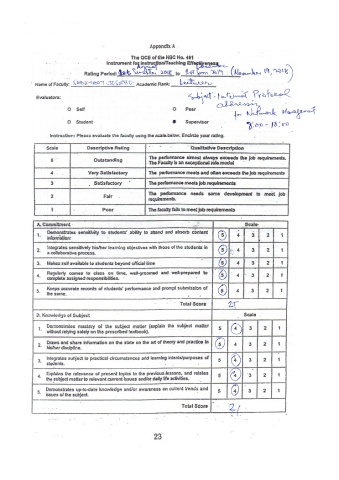 Appendix A
The QCE of the NBC No. 461
Instrument for Instruction/Teaching Effectiveness
Rating Period: 2018 to 2019 (November 19, 2018)
Name of Faculty: Academic Rank: Lecturer
Evaluators: Subject: Internet Protocol
addressing
O Self O Peer for Network Management
O Student Supervisor 8:00 - 10:00
Instruction: Please evaluate the faculty using the scale below. Encircle your rating.
Scale Descriptive Rating Qualitative Description
5 Outstanding The performance almost always exceeds the job requirements.
The Faculty is an exceptional role model
4 Very Satisfactory The performance meets and often exceeds the job requirements
3 Satisfactory The performance meets job requirements
2 Fair The performance needs some development to meet job
requirements.
1 Poor The faculty fails to meet job requirements
A. Commitment Scale
1. Demonstrates sensitivity to students' ability to attend and absorb content
information. 5 4 3 2 1
2. Integrates sensitively his/her learning objectives with those of the students in
a collaborative process. 5 4 3 2 1
3. Makes self available to students beyond official time 5 4 3 2 1
4. Regularly comes to class on time, well-groomed and well-prepared to
complete assigned responsibilities. 5 4 3 2 1
5. Keeps accurate records of students' performance and prompt submission of
the same. 5 4 3 2 1
Total Score 25
B. Knowledge of Subject Scale
1. Demonstrates mastery of the subject matter (explain the subject matter
without relying solely on the prescribed textbook). 5 4 3 2 1
2. Draws and share information on the state on the art of theory and practice in
his/her discipline. 5 4 3 2 1
3. Integrates subject to practical circumstances and learning intents/purposes of
students. 5 4 3 2 1
4. Explains the relevance of present topics to the previous lessons, and relates
the subject matter to relevant current issues and/or daily life activities. 5 4 3 2 1
5. Demonstrates up-to-date knowledge and/or awareness on current trends and
issues of the subject. 5 4 3 2 1
Total Score 21
23